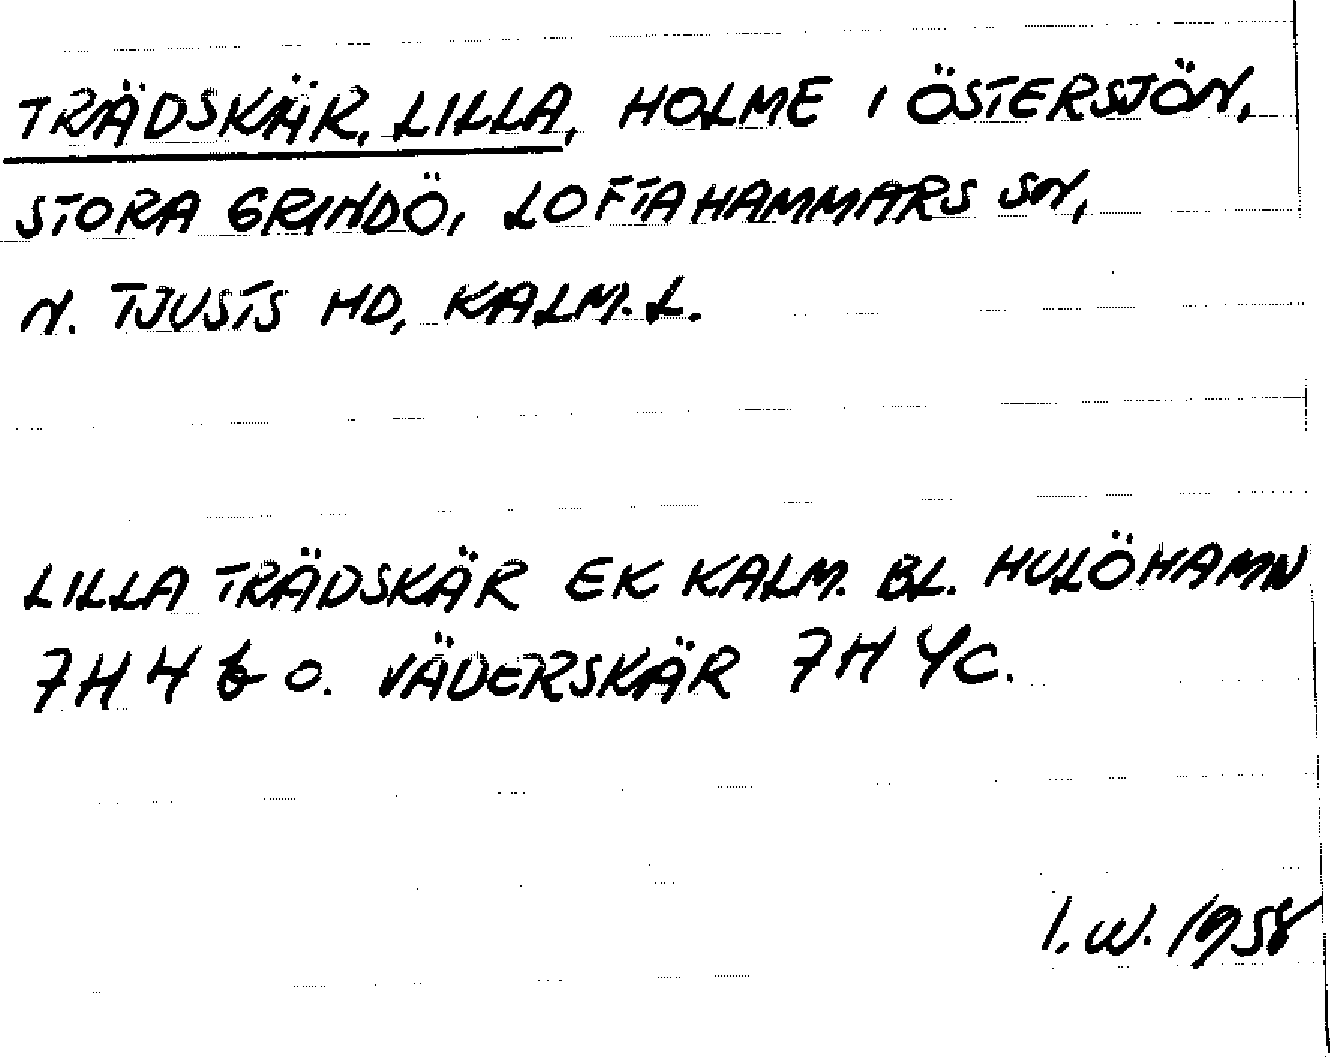 TRÄDSKÄR, LILLA, HOLME I ÖSTERSJÖN,
STORA GRINDÖ, LOFTAHAMMARS SN,
N. TJUSTS HD, KALM. L.
LILLA TRÄDSKÄR EK KALM. BL. HULÖHAMN
7H 4 b O. VÄDERSKÄR 7H 4c.
I. W. 1958